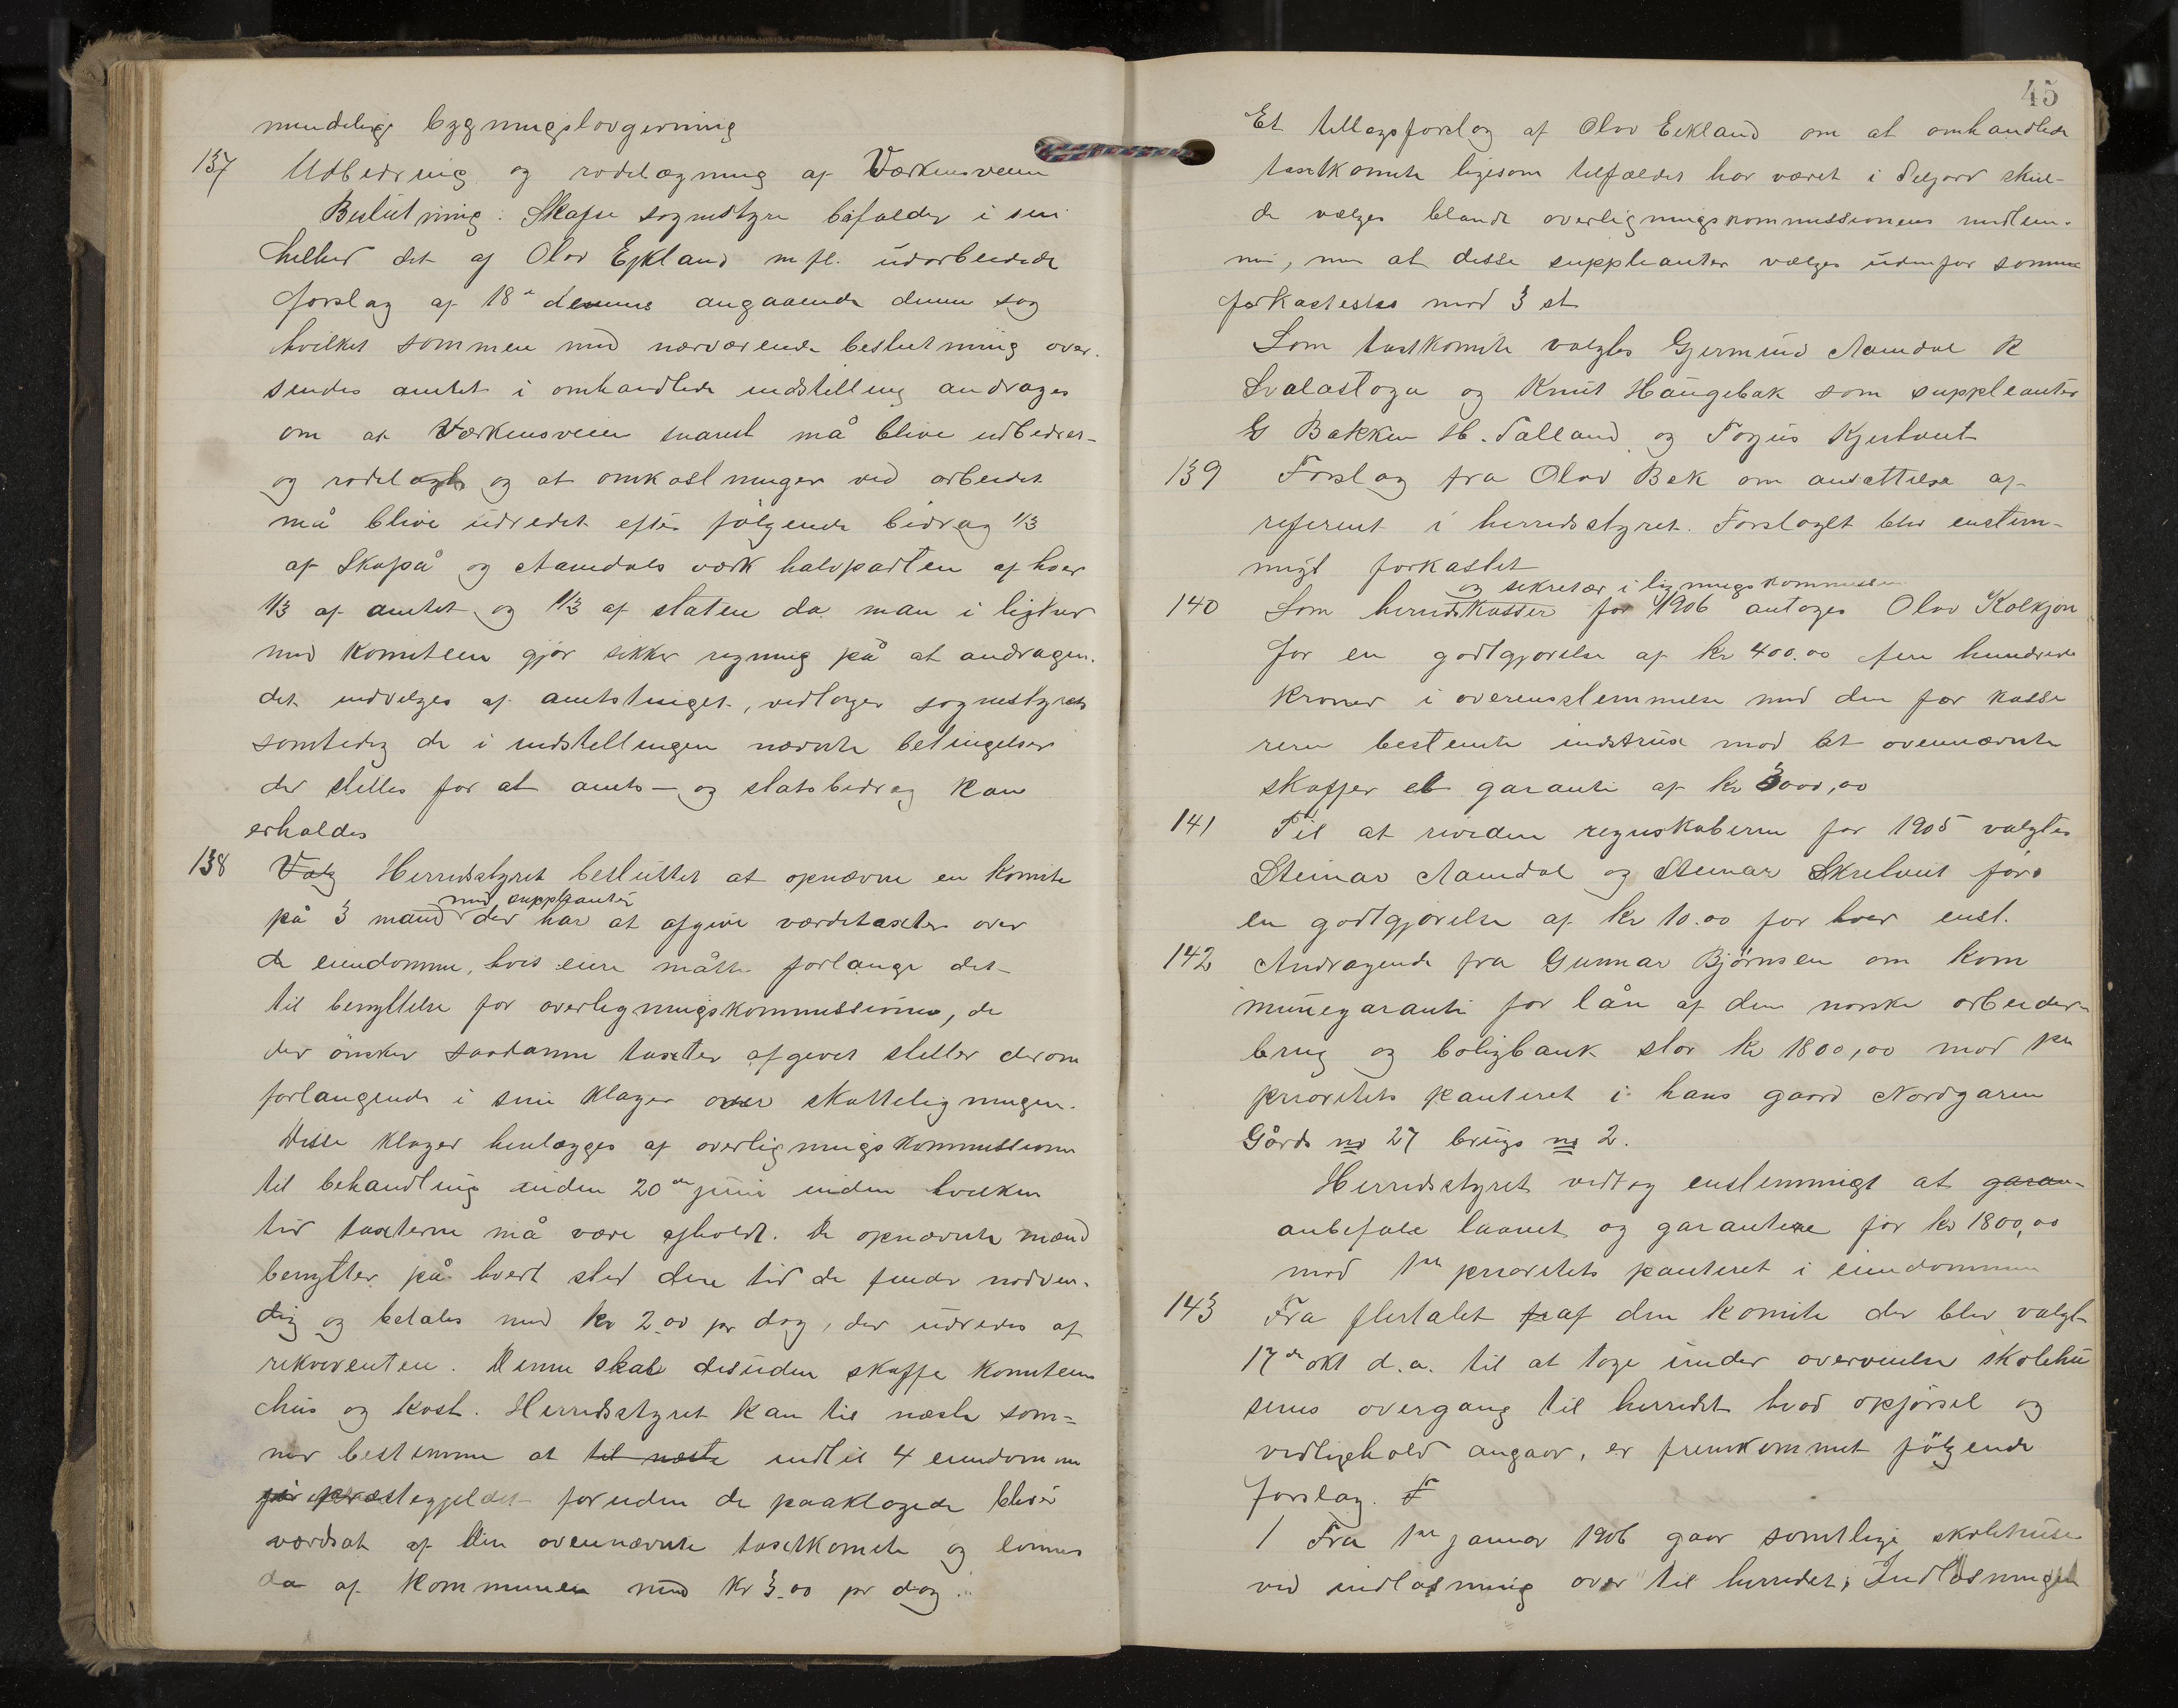 mindelige bygningslovgivning
137 Udbedring og rodelægning af Værkensveien
Beslutning: Skafse sognestyre bifalder i sin
helhed det af Olav Eikland m fl. udarbeidede
forslag af 18de dennes angaaende denne sag
hvilket sammen med nærværende beslutning over-
sendes amtet i omhandlede indstilling andrages
om at Værkensveien snarest må blive udbedret
og rodelagt og at omkostninger ved arbeidet
må blive udredet efter følgende bidrag 1/3
af Skafså og Aamdals værk halvparten af hver
1/3 af amtet og 1/3 af staten da man i lighed
med komiteen gjør sikker regning på at andragen-
det indvilges af amtstinget, vedtager sognestyret
samtidig de i indstillingen nævnte betingelser
der stilles for at amts- og statsbidrag kan
erholdes
138 Valg Herredsstyret besluttet at opnævne en komite
med suppleanter
på 3 mand der har at afgive værditakster over
de eiendomme, hvis eiere måtte forlange det
til benyttelse for overligningskommissionen, de
der ønsker saadanne takster afgivet stiller derom
forlangende i sine klager over skatteligningen.
Disse klager henlægges af overligningskommissionen
til behandling inden 20de juni inden hvilken
tid taksterne må være afholdt. De opnævnte mænd
benytter på hvert sted den tid de finder nødven-
dig og betales med kr 2.00 pr dag, der udredes af
rekvirenten. Denne skal desuden skaffe komiteen
hus og kost. Herredsstyret kan til næste som-
mer bestemme at til næste indtil 4 eiendomme
præstegjeldet foruden de paaklagede bliver
værdsat af den ovennævnte takstkomite og lønnes
da af kommunen med kr 3.00 pr dag.
45
Et tillægsforslag af Olav Eikland om at omhandlede
takstkomite ligesom tilfældet har været i Seljord skul-
de vælges blandt overligningskommissionens medlem-
mer, men at disse suppleanter vælges udenfor samme
forkastedes mod 3 st
Som takstkomite valgtes Gjermund Aamdal K
Svalastoga og Knut Haugebak som suppleanter
G Bakken H. Talland og Targus Kjertveit
139 Forslag fra Olav Bek om ansættelse af
referent i herredsstyret. Forslaget blev enstem-
migt forkastet
og sekretær i ligningskommissionen
140 Som herredskasser for 1906 antages Olav Kolkjøn
for en godtgjørelse af kr 400.00 fire hundrede
kroner i overensstemmelse med den for kasse
reren bestemte instrux mod at ovennævnte
skaffer et garanti af kr 3000,00
141 Til at revidere regnskaberne for 1905 valgtes
Steinar Aamdal og Steinar Skretveit for
en godtgjørelse af kr 10.00 for hver enst.
142 Andragende fra Gunnar Bjørnsen om kom
munegaranti for lån af den norske arbeider-
brug og boligbank stor kr 1800,00 mod 1ste
prioritets panteret i hans gaard Nordgaren
Gårds no 27 brugs no 2.
Herredsstyret vedtog enstemmigt at garan-
anbefale laanet og garantere for kr 1800,00
mod 1ste prioritets panteret i eiendommen
143 Fra flertalet fr af den komite der blev valgt
17de okt d.a. til at tage under overveielse skolehu
senes overgang til herredet hvad opførsel og
vedligehold angaar, er fremkommet følgende
forslag. F
1 Fra 1ste januar 1906 gaar samtlige skolehuse
ved indløsning over til herredet; Indløsningen